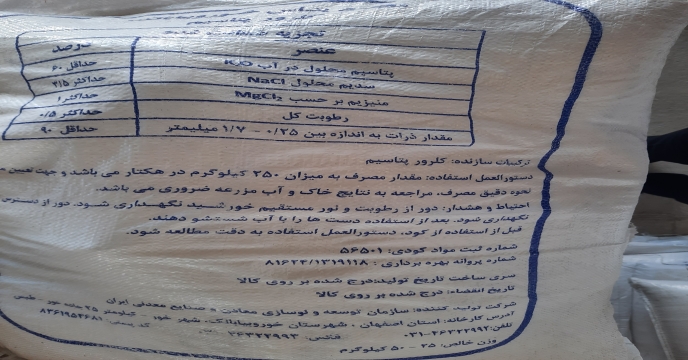 تجزیه
عنصر درصد
پتاسیم محلول در آب K₂O حداقل ۶۰
سدیم محلول NaCl حداکثر ۳/۵
منیزیم بر حسب MgCl₂ حداکثر ۱
رطوبت کل حداکثر ۰/۵
مقدار ذرات به اندازه بین ۰/۲۵ - ۱/۷ میلیمتر حداقل ۹۰
ترکیبات سازنده: کلرور پتاسیم
دستورالعمل استفاده: مقدار مصرف به میزان ۲۵۰ کیلوگرم در هکتار می باشد و جهت تعیین
نحوه دقیق مصرف، مراجعه به نتایج خاک و آب مزرعه ضروری می باشد.
احتیاط و هشدار: دور از رطوبت و نور مستقیم خورشید نگهداری شود. دور از دسترس
نگهداری شود. بعد از استفاده دست ها را با آب شستشو دهند.
قبل از استفاده از کود، دستورالعمل استفاده به دقت مطالعه شود.
شماره ثبت مواد کودی: ۵۶۵۰۱
شماره پروانه بهره برداری: ۸۱۶۲۴/۱۳۱۹۱۱۸
سری ساخت تاریخ تولید:درج شده بر روی کالا
تاریخ انقضاء: درج شده بر روی کالا
شرکت تولید کننده: سازمان توسعه و نوسازی معادن و صنایع معدنی ایران
آدرس کارخانه: استان اصفهان - شهرستان خوروبیابانک - شهر خور - کیلومتر ۳۵ جاده خور - طبس
تلفن: ۴۶۳۲۲۹۹۲-۰۳۱ فکس: ۴۶۳۲۲۹۹۳ کد پستی: ۸۳۶۱۹۵۳۶۸۱
وزن خالص: ۲۵ - ۵۰ کیلوگرم